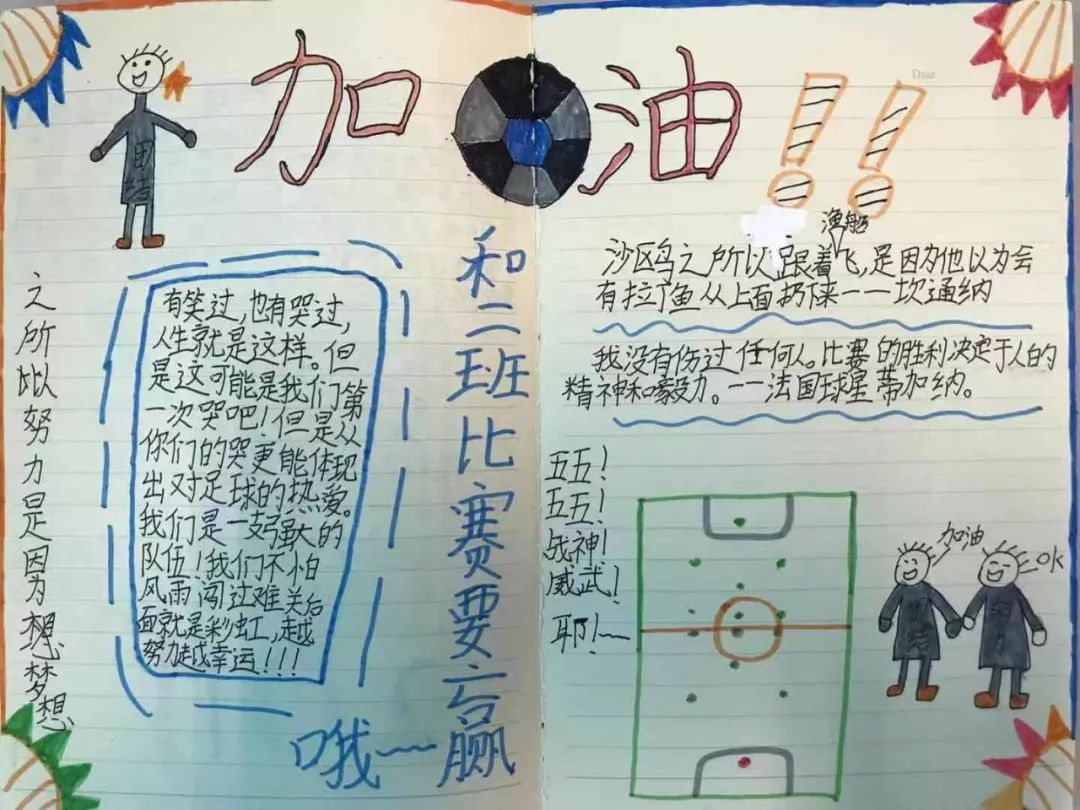 加油!!
团结
之所以努力是因为想梦想
有笑过,也有哭过,
人生就是这样。但
是这可能是我们第
一次哭吧!但是从
你们的哭更能体现
出对足球的热爱。
我们是一支强大的
队伍!我们不怕
风雨,闯过难关后
面就是彩虹,越
努力越幸运!!!
和二班比赛要赢
哦~~
Date
渔船
沙鸥之所以跟着飞,是因为他以为会
有拉丁鱼从上面扔下来——坎通纳
我没有伤过任何人。比赛的胜利决定于人的
精神和毅力。——法国球星蒂加纳。
五五!
五五!
战神!
威武!
耶!~
加油
OK
团结